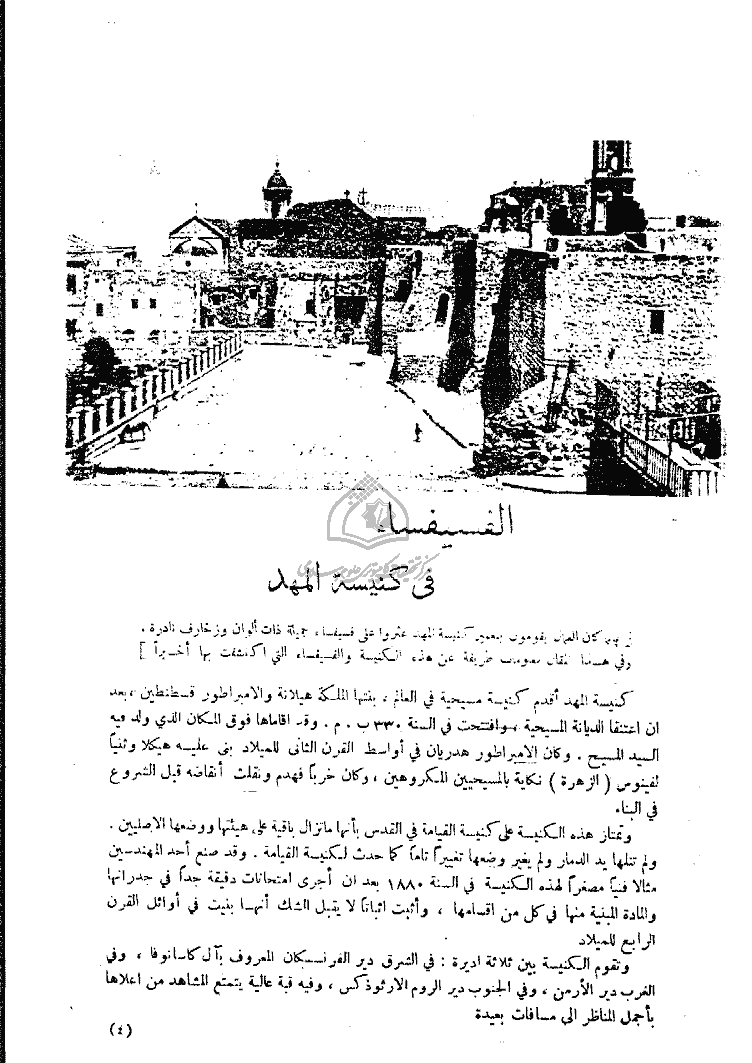 الفسيفساء
في كنيسة المهد
[ بينما كان العمال يقومون بتعمير كنيسة المهد عثروا على فسيفساء جميلة ذات ألوان وزخارف نادرة .
وفي هذا المقال معلومات طريفة عن هذه الكنيسة والفسيفساء التي اكتشفت بها أخيراً ]
كنيسة المهد أقدم كنيسة مسيحية في العالم ، بنتها الملكة هيلانة والامبراطور قسطنطين ، بعد
ان اعتنقا الديانة المسيحية ، وافتتحت في السنة ٣٣٠ ب . م . وقد اقاماها فوق المكان الذي ولد فيه
السيد المسيح . وكان الامبراطور هدريان في أواسط القرن الثاني للميلاد بنى عليه هيكلا وثنياً
لفينوس ( الزهرة ) نكاية بالمسيحيين المكروهين ، وكان خرباً فهدم ونقلت أنقاضه قبل الشروع
في البناء
وتمتاز هذه الكنيسة على كنيسة القيامة في القدس بأنها ماتزال باقية على هيئتها ووضعها الاصليين .
ولم تنلها يد الدمار ولم يغير وضعها تغييراً تاماً كما حدث لكنيسة القيامة . وقد صنع أحد المهندسين
مثالا فنياً مصغراً لهذه الكنيسة في السنة ١٨٨٠ بعد ان أجرى امتحانات دقيقة جداً في جدرانها
والمادة المبنية منها في كل من اقسامها ، وأثبت اثباتاً لا يقبل الشك أنها بنيت في أوائل القرن
الرابع للميلاد
وتقوم الكنيسة بين ثلاثة اديرة : في الشرق دير الفرنسسكان المعروف بآل كاسانوفا ، وفي
الغرب دير الأرمن ، وفي الجنوب دير الروم الارثوذكس ، وفيه قبة عالية يتمتع المشاهد من اعلاها
بأجمل المناظر الى مسافات بعيدة
(٤)